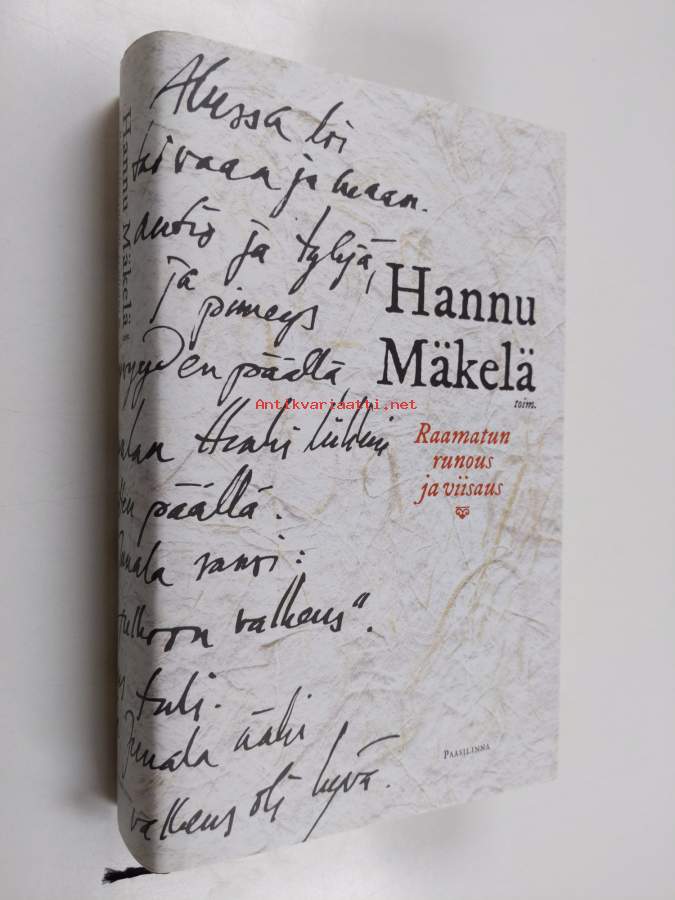 Alussa loi
taivaan ja maan.
autio ja tyhjä,
ja pimeys
päällä
Henki liikkui
päällä.
sanoi:
valkeus".
tuli.
Jumala näki
valkeus oli hyvä.
Hannu
Mäkelä
toim.
Raamatun
runous
ja viisaus
PAASILINNA
Hannu Mäkelä
Antikvariaatti.net